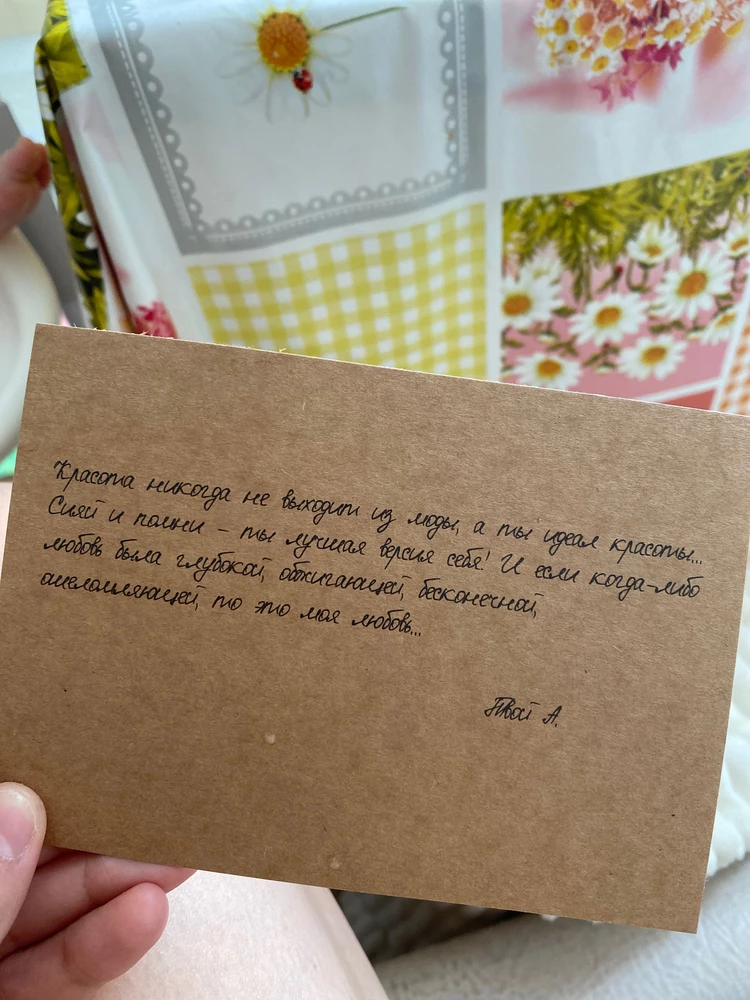 Красота никогда не выходит из моды, а ты идеал красоты...
Сияй и помни - ты лучшая версия себя! И если когда-либо
любовь была глубокой, обжигающей, бесконечной,
ошеломляющей, то это моя любовь...
Твой А.